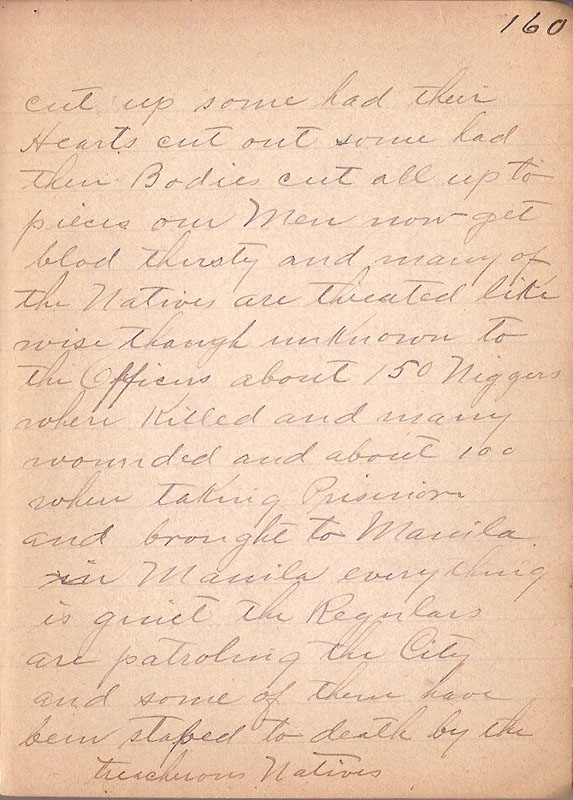 160
cut up some had their
Hearts cut out some had
their Bodies cut all up to
pieces our Men now get
blod thirsty and many of
the Natives are theated like
wise though unKnown to
the Officers about 150 Niggers
where Killed and many
wounded and about 100
when taking Prisinors
and brought to Manila
in Manila everything
is quiet the Regulars
are patroling the City
and some of them have
been stabed to death by the
treacherous Natives